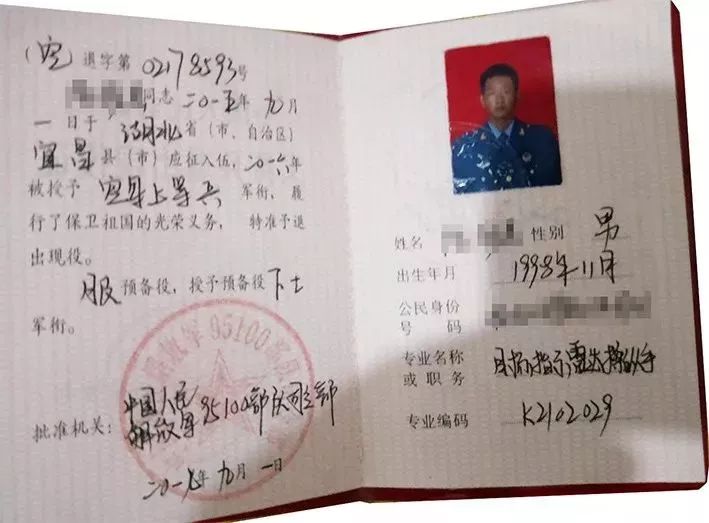 （空）退字第02178593号
同志二〇一五年九月
一日于湖北省（市、自治区）
宜昌县（市）应征入伍，二〇一六年
被授予空军上等兵军衔，履
行了保卫祖国的光荣义务，特准予退
出现役。
服预备役，授予预备役下士
军衔。
解放军95100部队
批准机关：
中国人民
解放军95100部队司令部
二〇一七年九月一日
姓名 性别 男
出生年月 1998年11月
公民身份
号码
专业名称
或职务
目标指示雷达操纵手
专业编码 K2102029